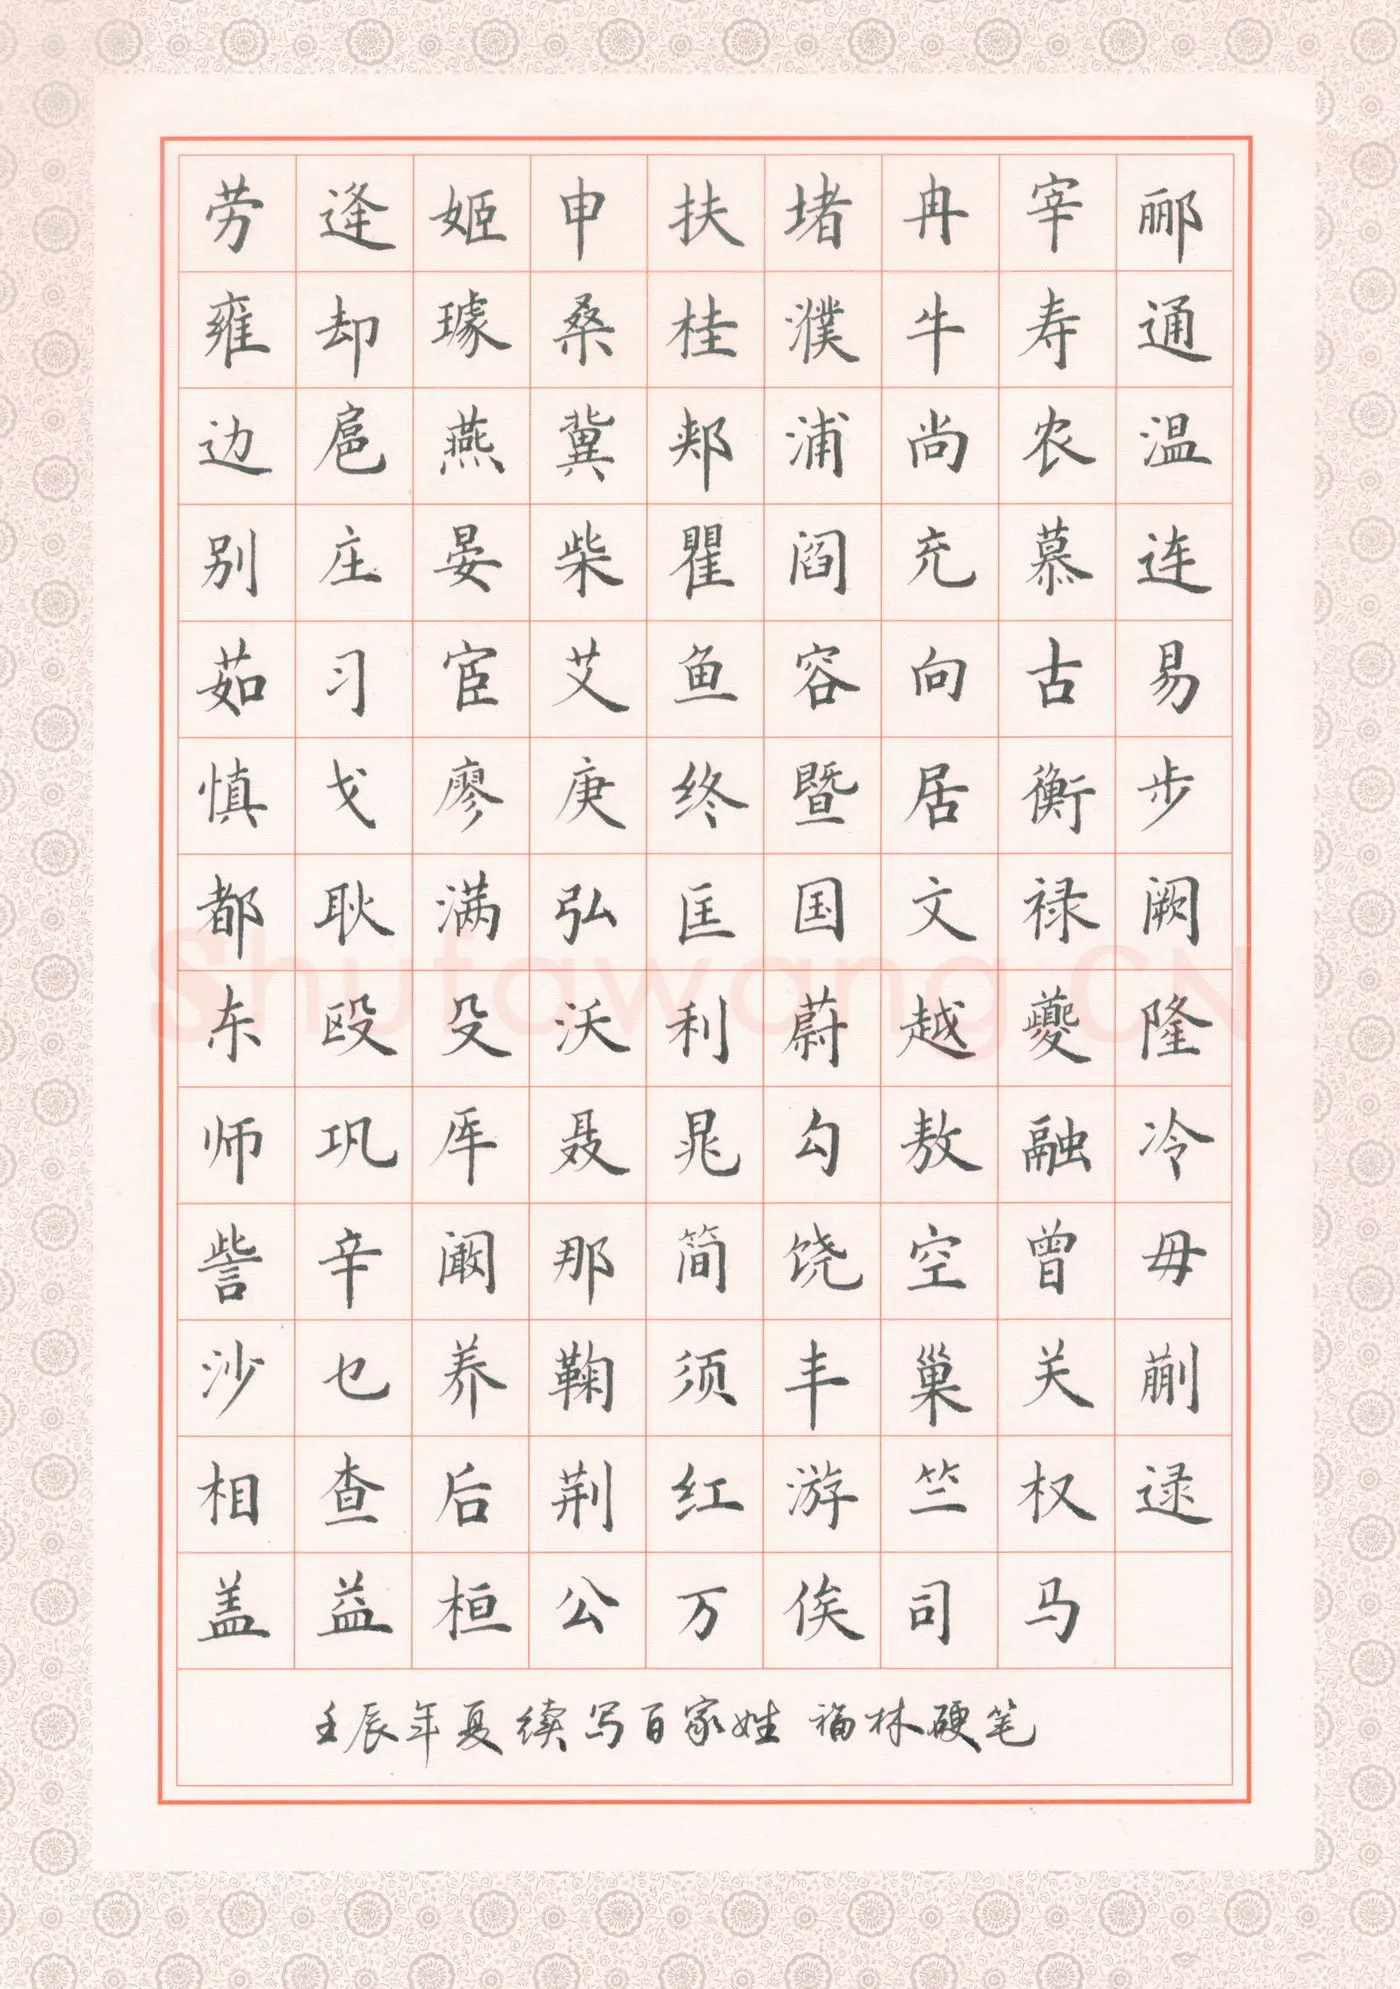 劳逢姬申扶堵冉宰郦
雍却璩桑桂濮牛寿通
边扈燕冀郏浦尚农温
别庄晏柴瞿阎充慕连
茹习宦艾鱼容向古易
慎戈廖庚终暨居衡步
都耿满弘匡国文禄阙
Shufawang.CN
东殴殳沃利蔚越夔隆
师巩厍聂晁勾敖融冷
訾辛阚那简饶空曾毋
沙乜养鞠须丰巢关蒯
相查后荆红游竺权逯
盖益桓公万俟司马
壬辰年夏续写百家姓 福林硬笔